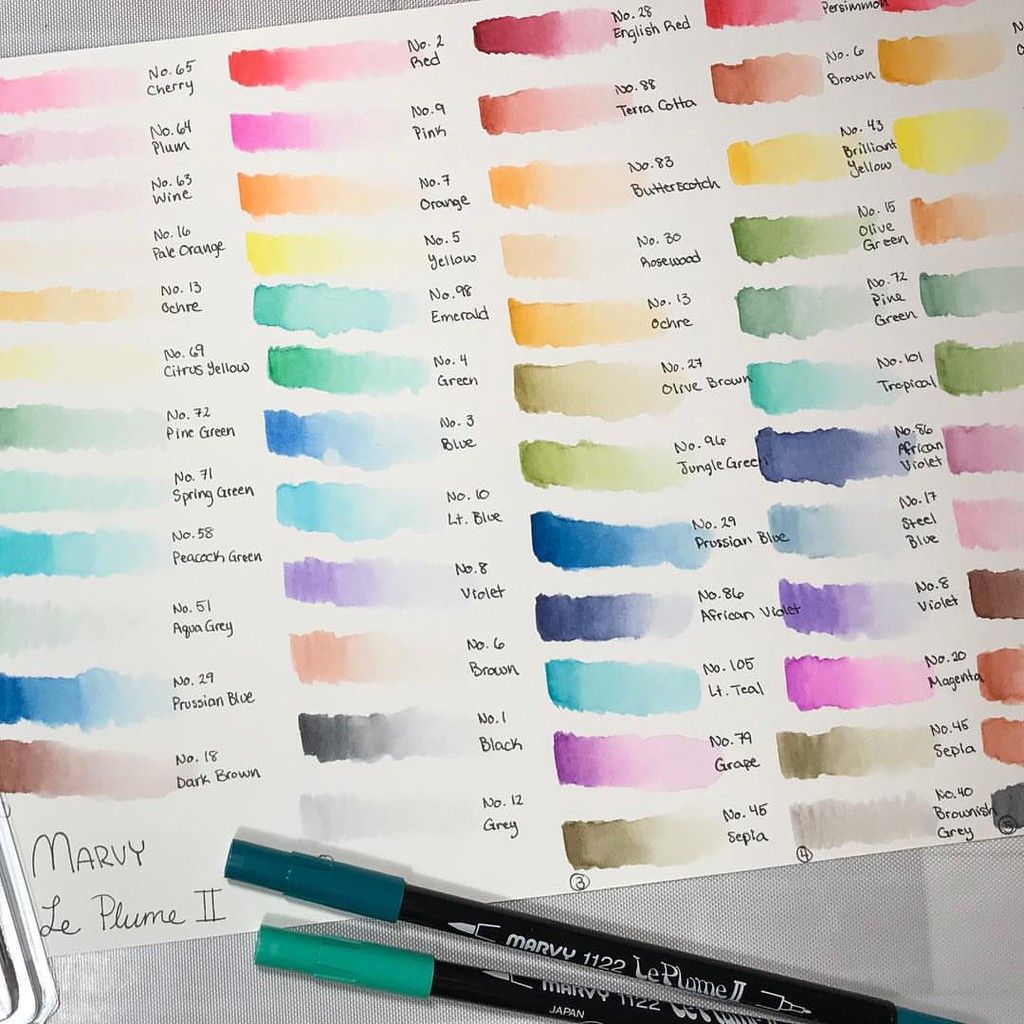 No. 65
Cherry
No. 64
Plum
No. 63
Wine
No. 16
Pale Orange
No. 13
Ochre
No. 69
Citrus Yellow
No. 72
Pine Green
No. 71
Spring Green
No. 58
Peacock Green
No. 51
Aqua Grey
No. 29
Prussian Blue
No. 18
Dark Brown
No. 2
Red
No. 9
Pink
No. 7
Orange
No. 5
Yellow
No. 98
Emerald
No. 4
Green
No. 3
Blue
No. 10
Lt. Blue
No. 8
Violet
No. 6
Brown
No. 1
Black
No. 12
Grey
No. 28
English Red
No. 88
Terra Cotta
No. 83
Butterscotch
No. 30
Rosewood
No. 13
Ochre
No. 27
Olive Brown
No. 96
Jungle Green
No. 29
Prussian Blue
No. 86
African Violet
No. 105
Lt. Teal
No. 79
Grape
No. 45
Sepia
3
Persimmon
No. 6
Brown
No. 43
Brilliant
Yellow
No. 15
Olive
Green
No. 72
Pine
Green
No. 101
Tropical
No. 86
African
Violet
No. 17
Steel
Blue
No. 8
Violet
No. 20
Magenta
No. 45
Sepia
No. 40
Brownish
Grey
4
MARVY
Le Plume II
MARVY 1122 Le Plume II
MARVY 1122 Le Plume II
JAPAN